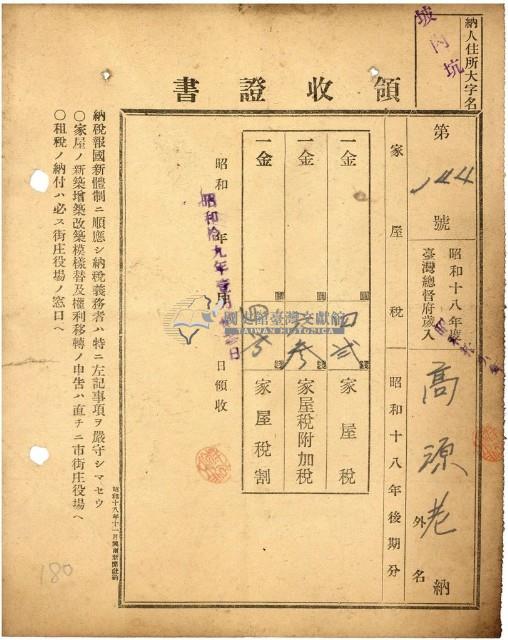 納人住所大字名
坡內坑
領收證書
第 144 號
昭和十八年度
臺灣總督府歲入
高源老 外 名 納
家屋稅 昭和十八年後期分
一金 家屋稅
一金 家屋稅附加稅
一金 家屋稅割
昭和 年 月 日領收
納稅報國新體制ニ順應シ納稅義務者ハ特ニ左記事項ヲ嚴守シマセウ
〇家屋ノ新築增築改築模樣替及權利移轉ノ申吿ハ直チニ市街庄役場ヘ
〇租稅ノ納付ハ必ズ街庄役場ノ窓口ヘ
180
國史館臺灣文獻館
TAIWAN HISTORICA